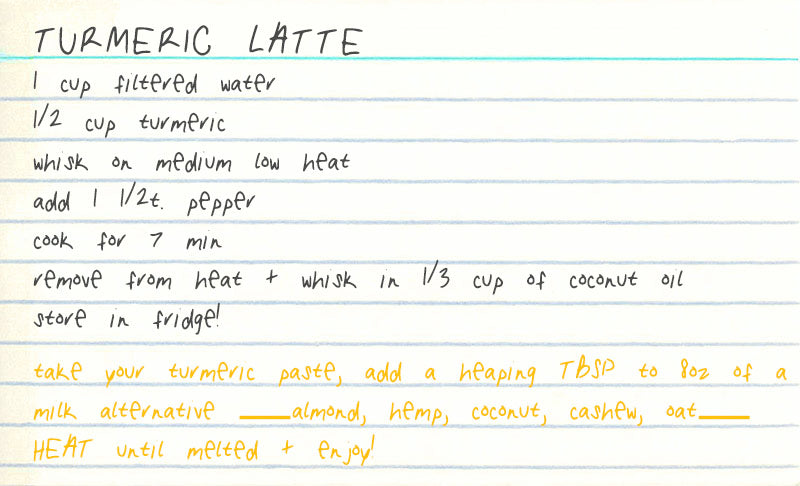 TURMERIC LATTE
1 cup filtered water
1/2 cup turmeric
whisk on medium low heat
add 1 1/2t. pepper
cook for 7 min
remove from heat + whisk in 1/3 cup of coconut oil
store in fridge!
take your turmeric paste, add a heaping TBSP to 8oz of a
milk alternative ___almond, hemp, coconut, cashew, oat___
HEAT until melted + enjoy!